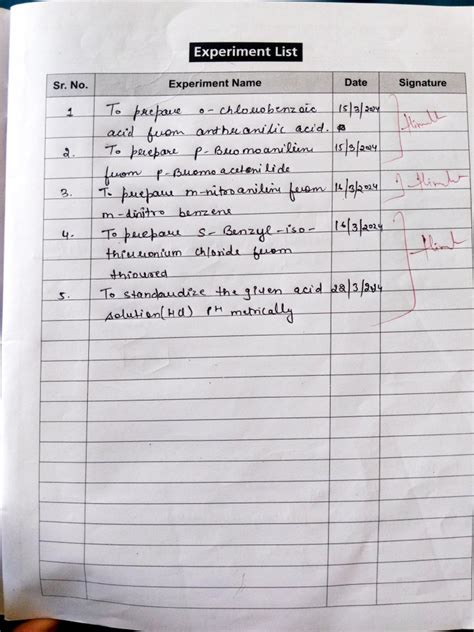 Experiment List
Sr. No. Experiment Name Date Signature
1 To prepare o-chlorobenzoic 15/3/2024
acid from anthranilic acid.
2. To prepare p-Bromoanilin 15/3/2024
from p-Bromoacetanilide
3. To prepare m-nitroanilin from 16/3/2024
m-dinitro benzene
4. To prepare S-Benzyl-iso- 16/3/2024
thiuronium chloride from
thiourea
5. To standardize the given acid 28/3/2024
solution(HCl) PH metrically